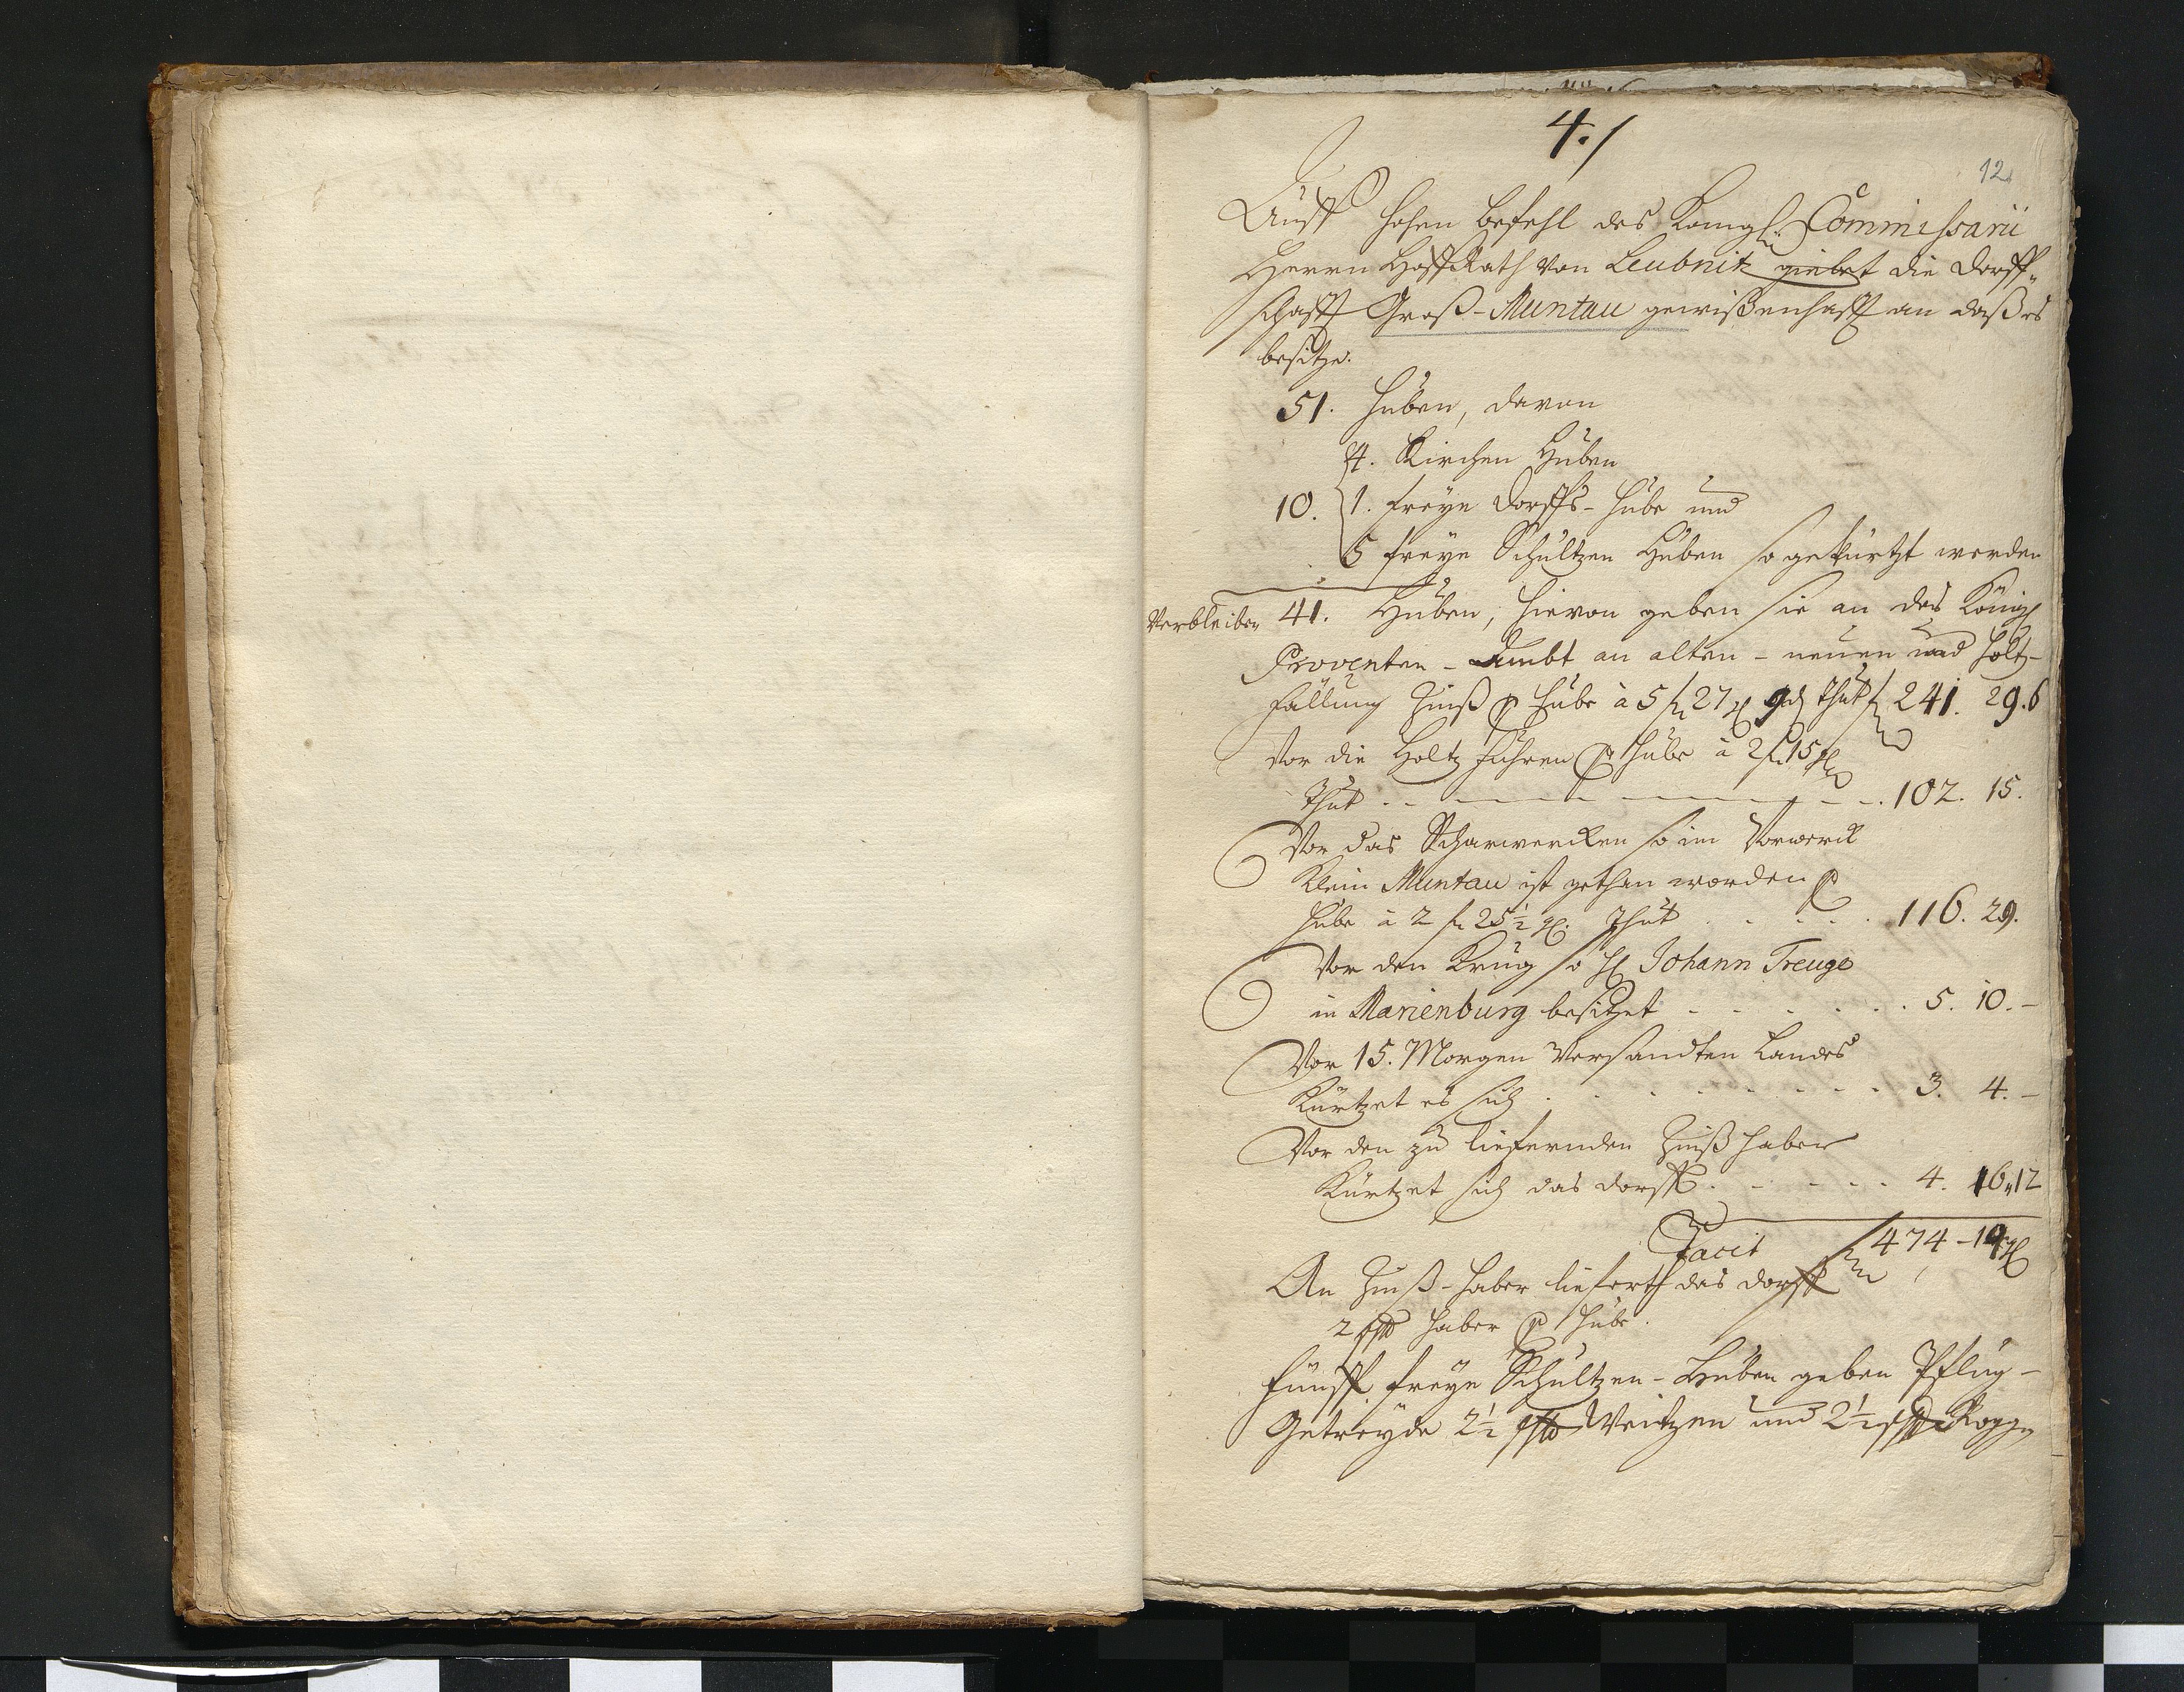 4./
12
Auff hohen befehl des Königl. Commissarii
Herrn HoffRath von Leubnitz giebet die Dorff-
schafft Groß-Muntau gewißenhafft an daß es
besitze.
51. Huben, davon
4. Kirchen Huben
10. 1. freye Dorffs-Hube und
5 freye Schultzen Huben so gekürtzt werden
Verbleiben 41. Huben, hievon geben sie an das Königl
Proventen-Ambt an alten- neuen und Holtz-
fällung Zinß p Hube à 5 fl 27 gl 9 d thut fl 241. 29.6
Vor die Holtz fuhren p Hube à 2 fl 15 gl
thut 102. 15.
Vor das Scharwercken so im Vorwerck
Klein Muntau ist gethan worden p
Hube à 2 fl 25½ gl. thut 116. 29.
Vor den Krug so H Johann Treuge
in Marienburg besitzet 5. 10.-
Vor 15. Morgen versandten Landes
Kürtzet es sich 3. 4.-
Vor den zu liefernden Zinß haber
Kürtzet sich das dorff 4. 16.12
Facit fl 474-19 gl
An Zinß-haber lieferth das dorff
2 schfl haber p Hube.
Fünff freye Schultzen-Huben geben Pflug-
Getreyde 2½ schfl Weitzen und 2½ schfl Roggen